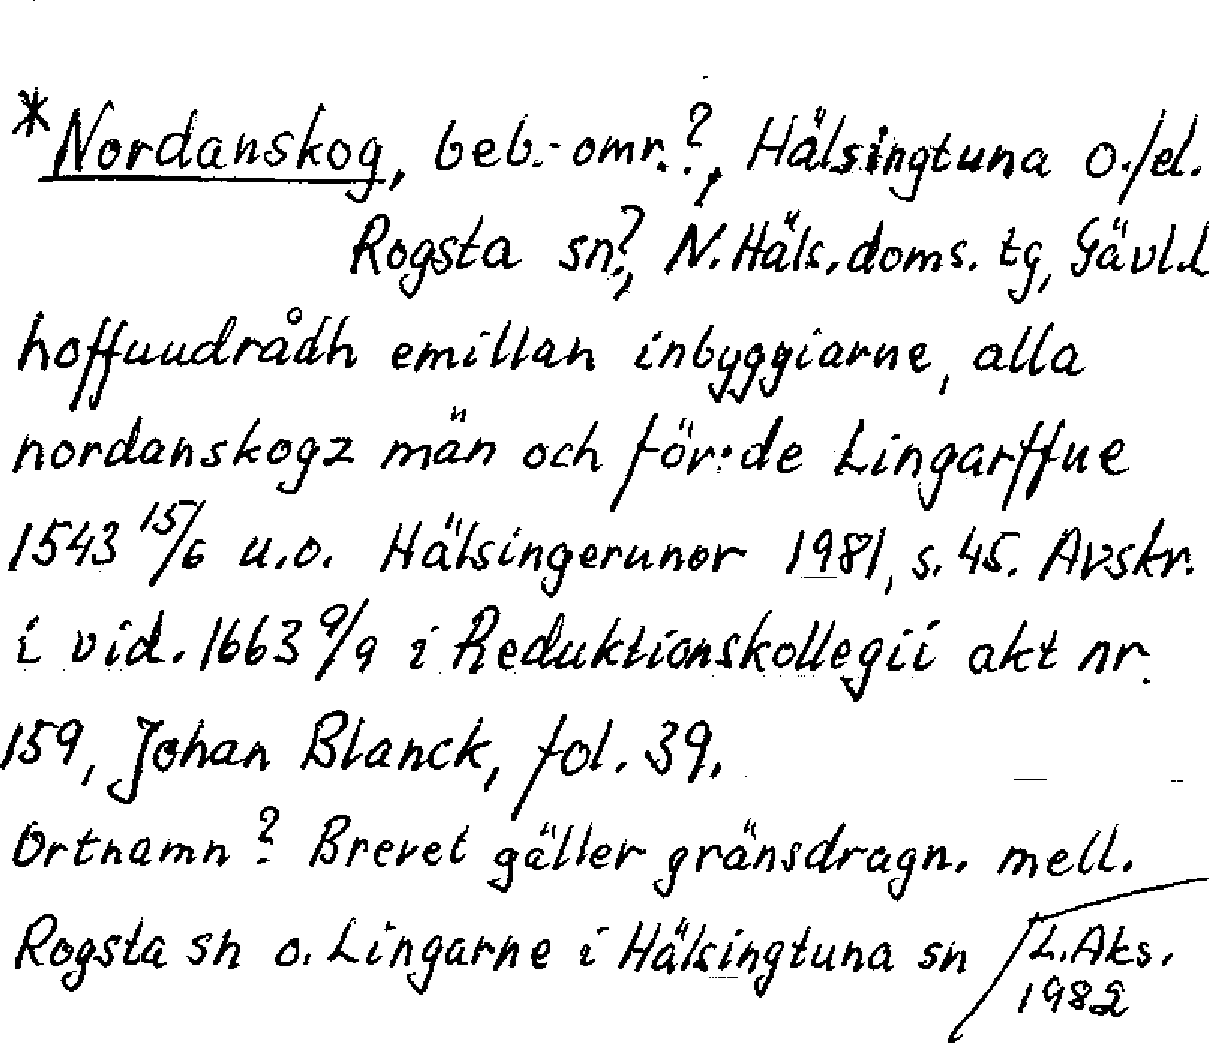 *Nordanskog, beb.-omr.?, Hälsingtuna o./el.
Rogsta sn?, N. Häls. doms. tg, Gävl.l
hoffuudrådh emillan inbyggiarne, alla
nordanskogz män och för:de Lingarffue
1543 15/6 u.o. Hälsingerunor 1981, s. 45. Avskr.
i vid. 1663 9/9 i Reduktionskollegii akt nr.
159, Johan Blanck, fol. 39.
Ortnamn? Brevet gäller gränsdragn. mell.
Rogsta sn o. Lingarne i Hälsingtuna sn
L. Aks.
1982